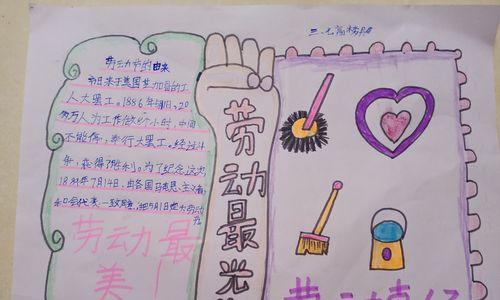 劳动节的由来
节日来于美国芝加哥的工
人大罢工。1886年5月1日,20
多万人为工作做8个小时,中间
不能停,举行大罢工,经过斗
争,获得了胜利。为了纪念这次
1889年7月14日,由各国马克思主义者
一致同意,把5月1日定为劳动
节
劳动最
美!
劳动最光
劳动